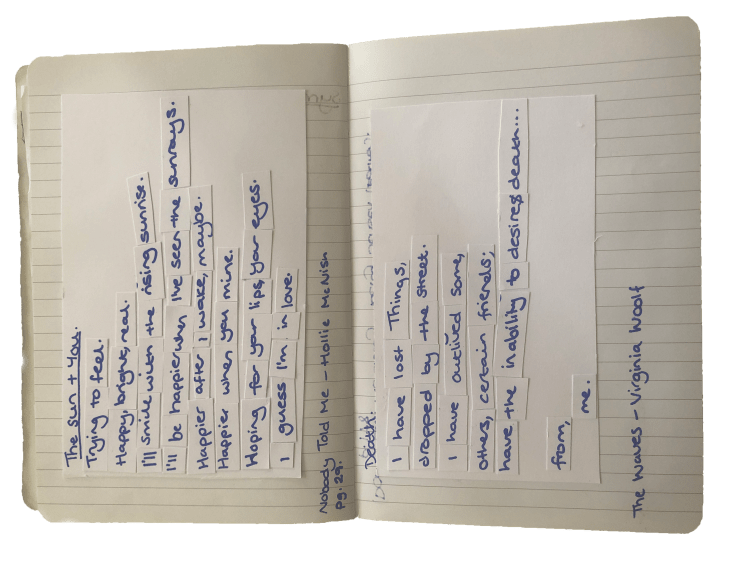 The sun + You.
Trying to feel
Happy, bright, real.
I'll smile with the rising sunrise.
I'll be happier when I've seen the sunrays.
Happier after I wake, maybe.
Happier when you mine.
Hoping for your lips, your eyes.
I guess I'm in love.
Nobody Told Me - Hollie McNish
pg. 29.
Death.
I have lost Things,
dropped by the street.
I have outlived some,
others, certain friends;
have the inability to desire & death...
from,
me.
The Waves - Virginia Woolf